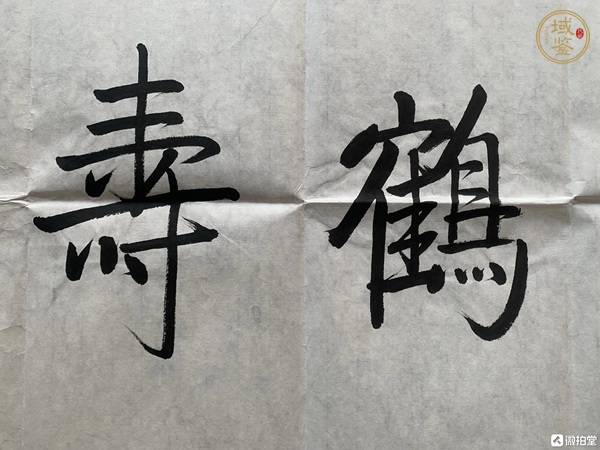 鶴壽
域鉴
微拍堂